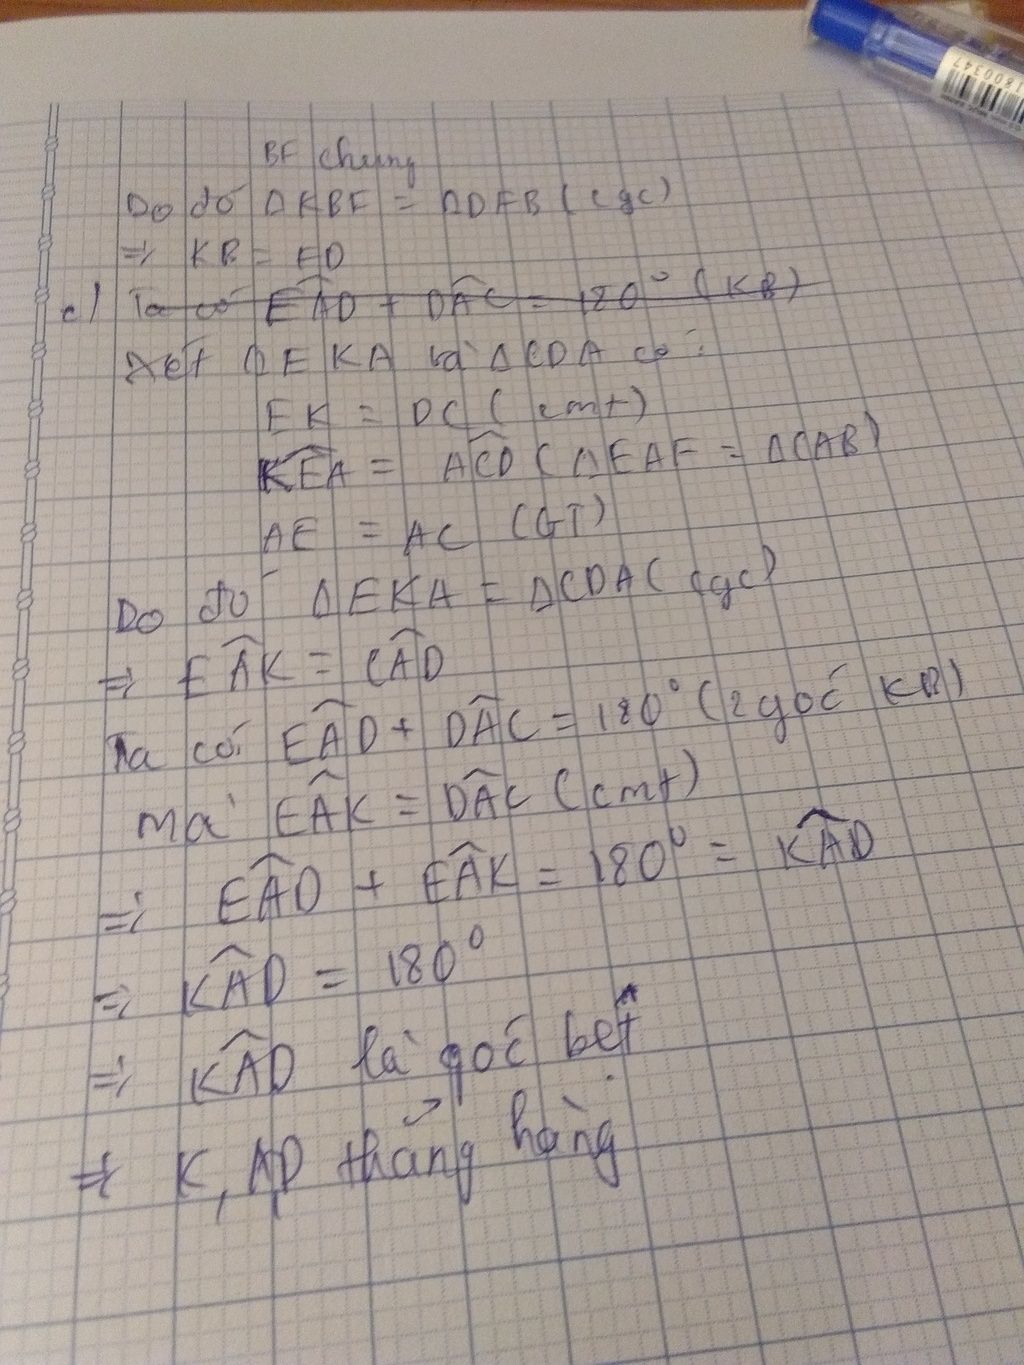 BF chung
Do đó ΔKBF = ΔDFB (cgc)
=> KB = FD
c/ Ta có EÂD + DÂC = 180° (KB)
Xét ΔEKA và ΔCDA có:
EK = DC (cmt)
KÊA = AĈD (ΔEAF = ΔCAB)
AE = AC (GT)
Do đó ΔEKA = ΔCDA (cgc)
=> EÂK = CÂD
Ta có EÂD + DÂC = 180° (2 góc KB)
mà EÂK = DÂC (cmt)
=> EÂD + EÂK = 180° = KÂD
=> KÂD = 180°
=> KÂD là góc bẹt
=> K, A, D thẳng hàng